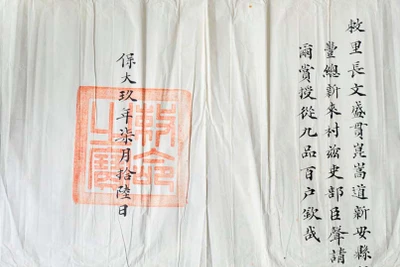 敕里長文盛貫崑嵩道新安縣
豐總新來村茲吏部臣聲請
爾賞授從九品百户欽哉
保大玖年柒月拾陸日
敕命之寶